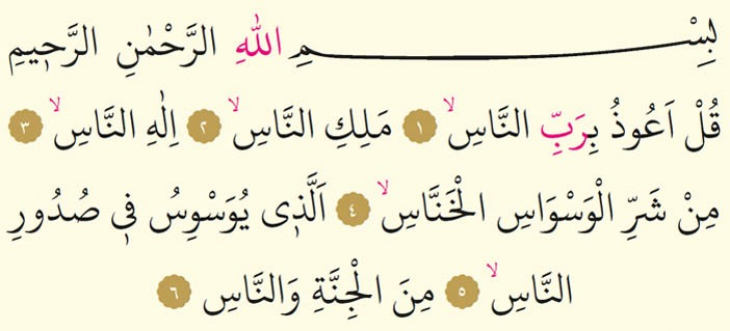 بِسْــــــــــــــــــمِ اللهِ الرَّحْمٰنِ الرَّح۪يمِ
قُلْ اَعُوذُ بِرَبِّ النَّاسِۙ ﴿١﴾ مَلِكِ النَّاسِۙ ﴿٢﴾ اِلٰهِ النَّاسِۙ ﴿٣﴾
مِنْ شَرِّ الْوَسْوَاسِ الْخَنَّاسِۙ ﴿٤﴾ اَلَّذ۪ى يُوَسْوِسُ ف۪ى صُدُورِ
النَّاسِۙ ﴿٥﴾ مِنَ الْجِنَّةِ وَالنَّاسِ ﴿٦﴾